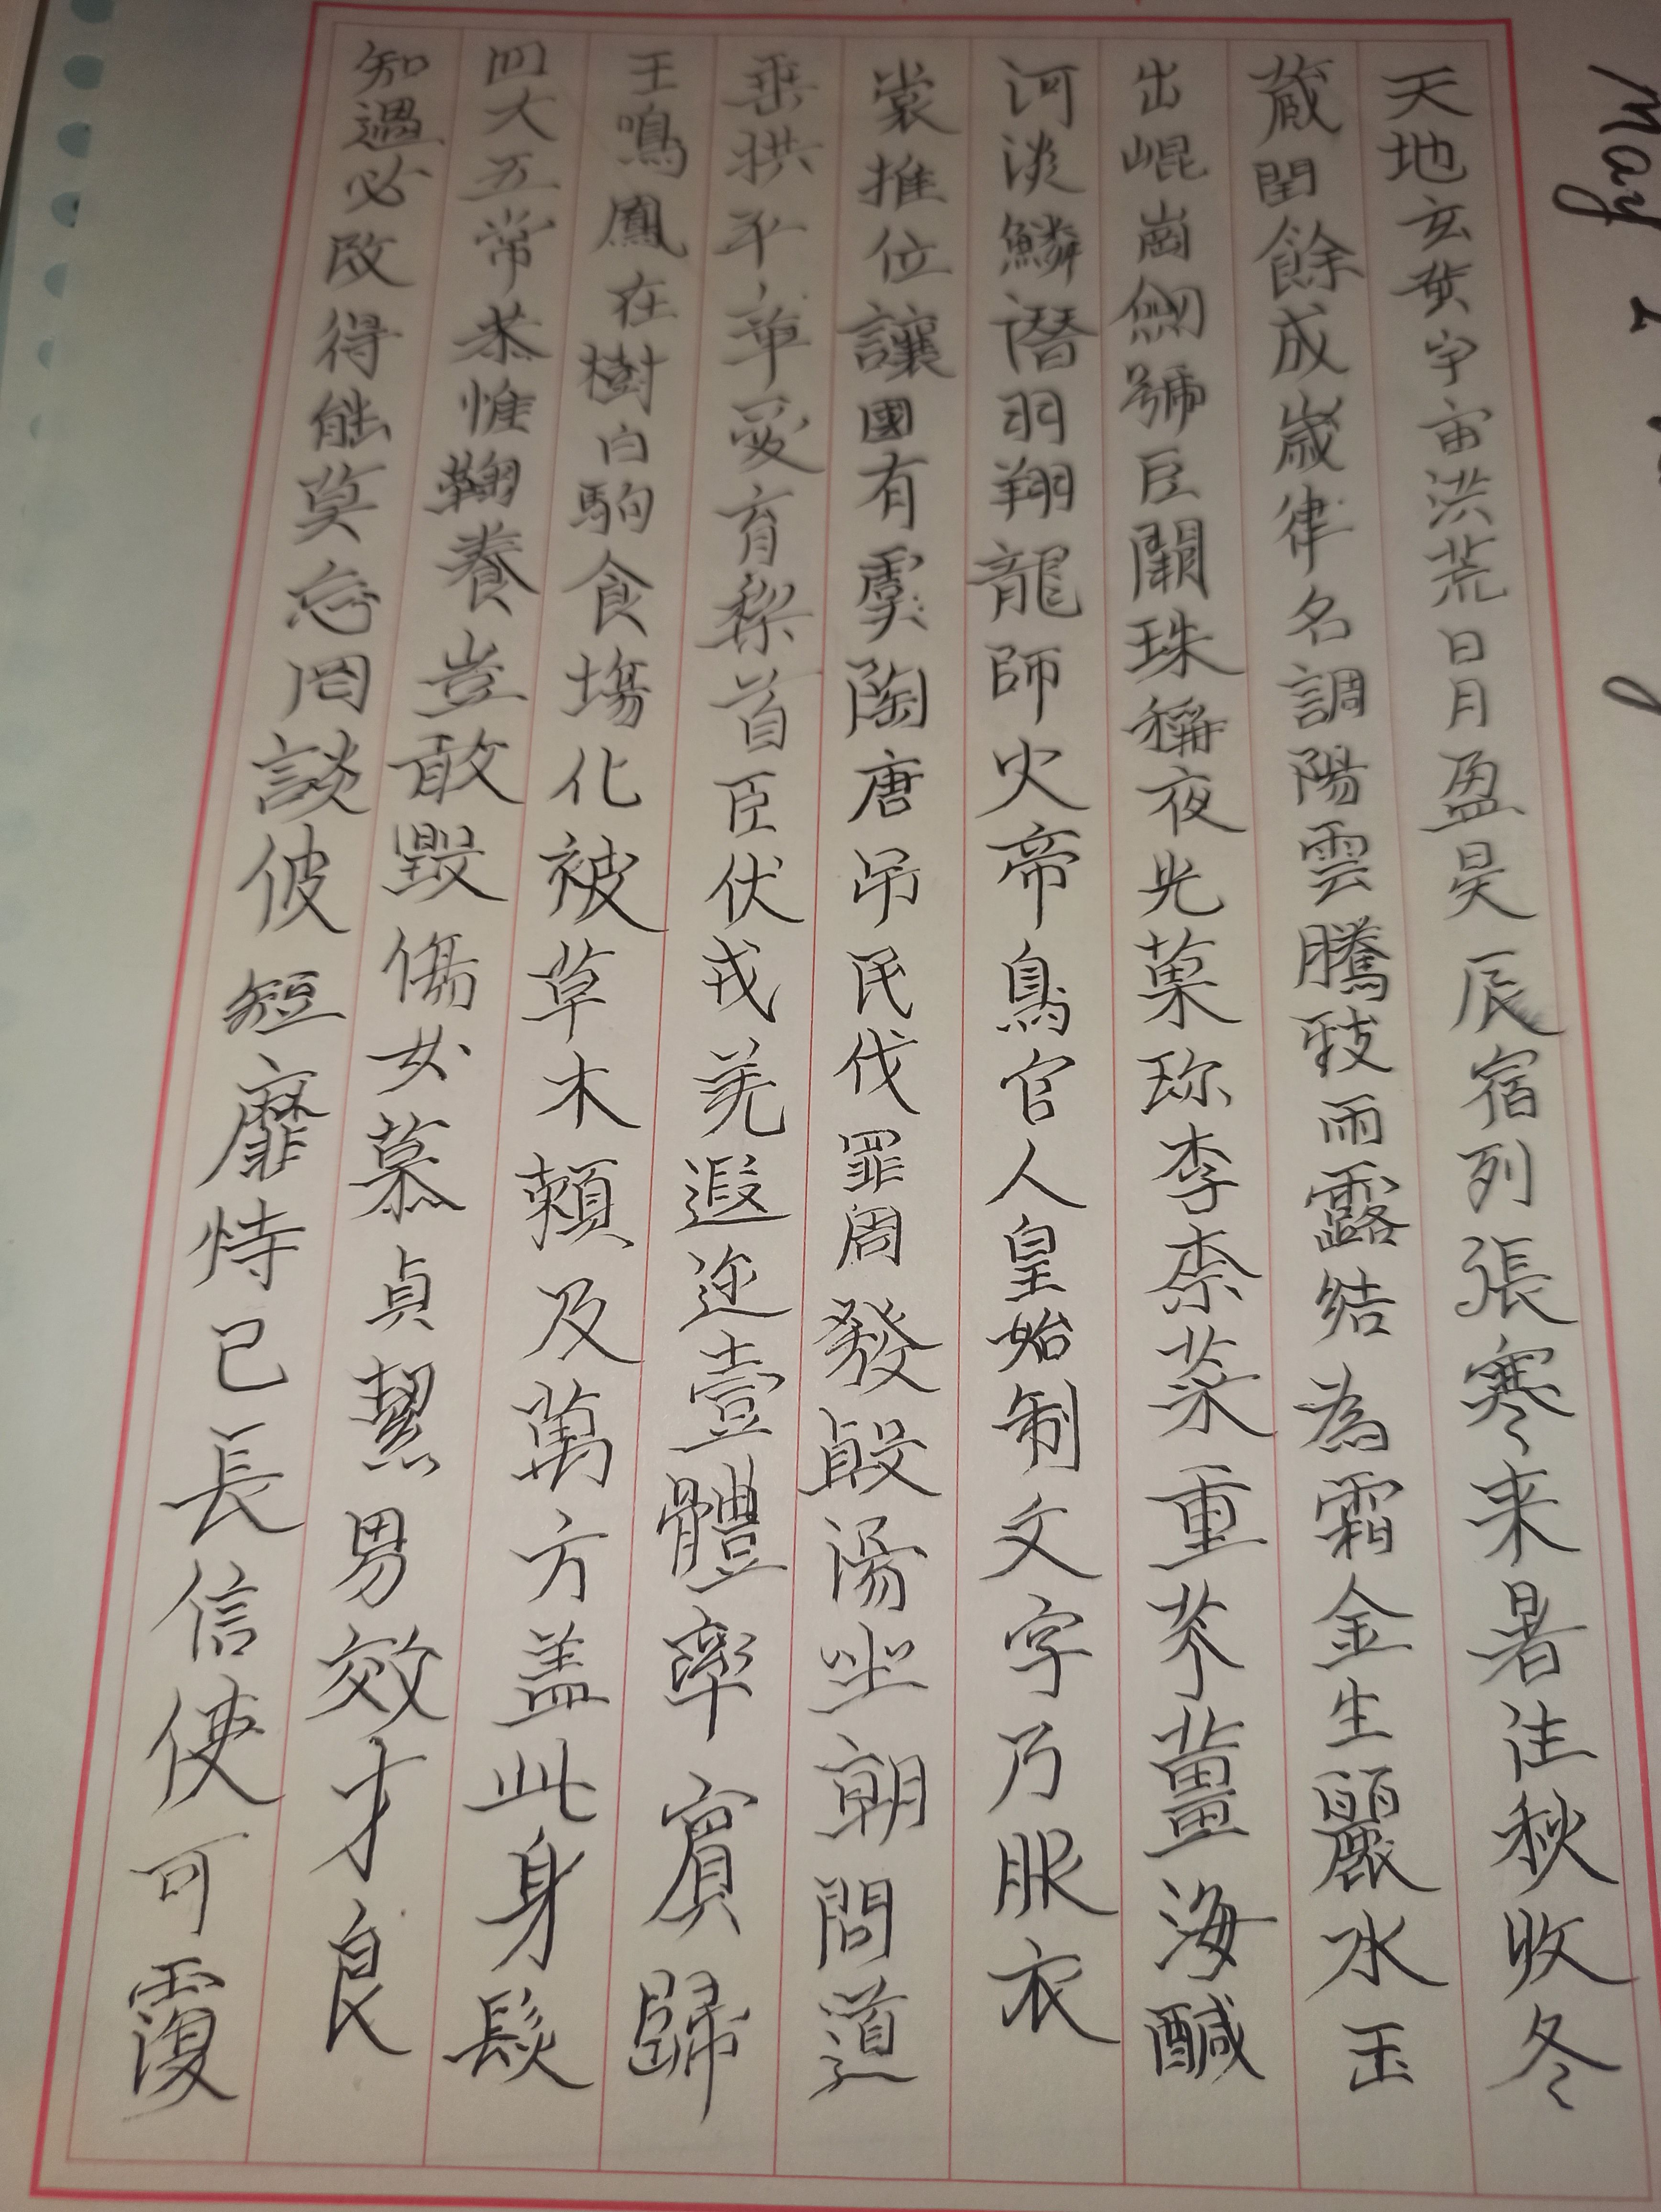 May 2
天地玄黄宇宙洪荒日月盈昃辰宿列張寒来暑往秋收冬
蔵閏餘成歲律名調陽雲騰致雨露結為霜金生麗水玉
出崐崗劒號巨闕珠稱夜光菓珎李柰菜重芥薑海醎
河淡鱗潛羽翔龍師火帝鳥官人皇始制文字乃服衣
裳推位讓國有虞陶唐吊民伐罪周發殷湯坐朝問道
垂拱平章愛育黎首臣伏戎羌遐迩壹體率賓歸
王鳴鳳在樹白駒食場化被草木賴及萬方盖此身髮
四大五常恭惟鞠養豈敢毀傷女慕貞絜男效才良
知過必改得能莫忘罔談彼短靡恃己長信使可覆